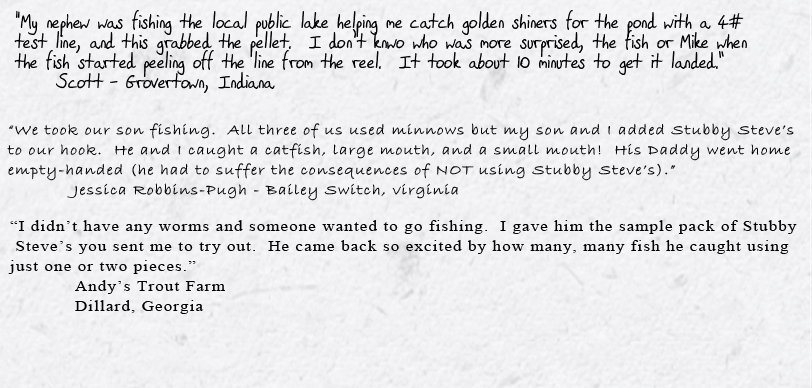 "My nephew was fishing the local public lake helping me catch golden shiners for the pond with a 4#
test line, and this grabbed the pellet. I don't knwo who was more surprised, the fish or Mike when
the fish started peeling off the line from the reel. It took about 10 minutes to get it landed."
Scott - Grovertown, Indiana
"We took our son fishing. All three of us used minnows but my son and I added Stubby Steve's
to our hook. He and I caught a catfish, large mouth, and a small mouth! His Daddy went home
empty-handed (he had to suffer the consequences of NOT using Stubby Steve's)."
Jessica Robbins-Pugh - Bailey Switch, Virginia
“I didn’t have any worms and someone wanted to go fishing. I gave him the sample pack of Stubby
Steve’s you sent me to try out. He came back so excited by how many, many fish he caught using
just one or two pieces.”
Andy’s Trout Farm
Dillard, Georgia